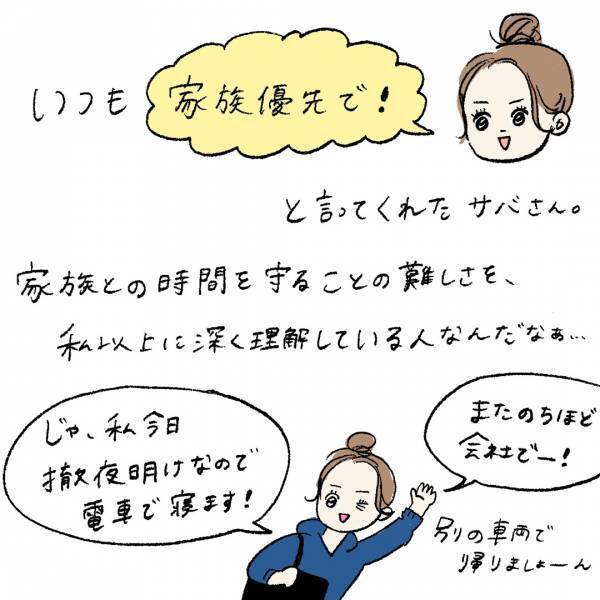 いつも 家族優先で！
と言ってくれた サバさん。
家族との時間を守ることの難しさを、
私以上に深く理解している人なんだなぁ…
じゃ、私今日
徹夜明けなので
電車で寝ます！
またのちほど
会社でー！
別の車両で
帰りましょーん